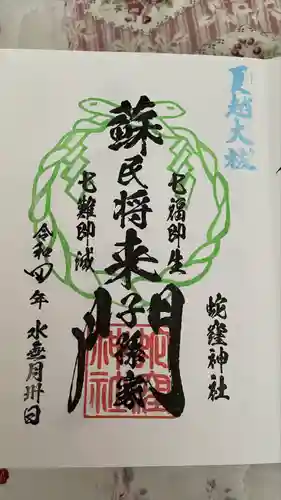 夏越大祓
七福即生
蘇民将来子孫家門
七難即滅
蛇窪神社
令和四年 水無月卅日
蛇窪神社